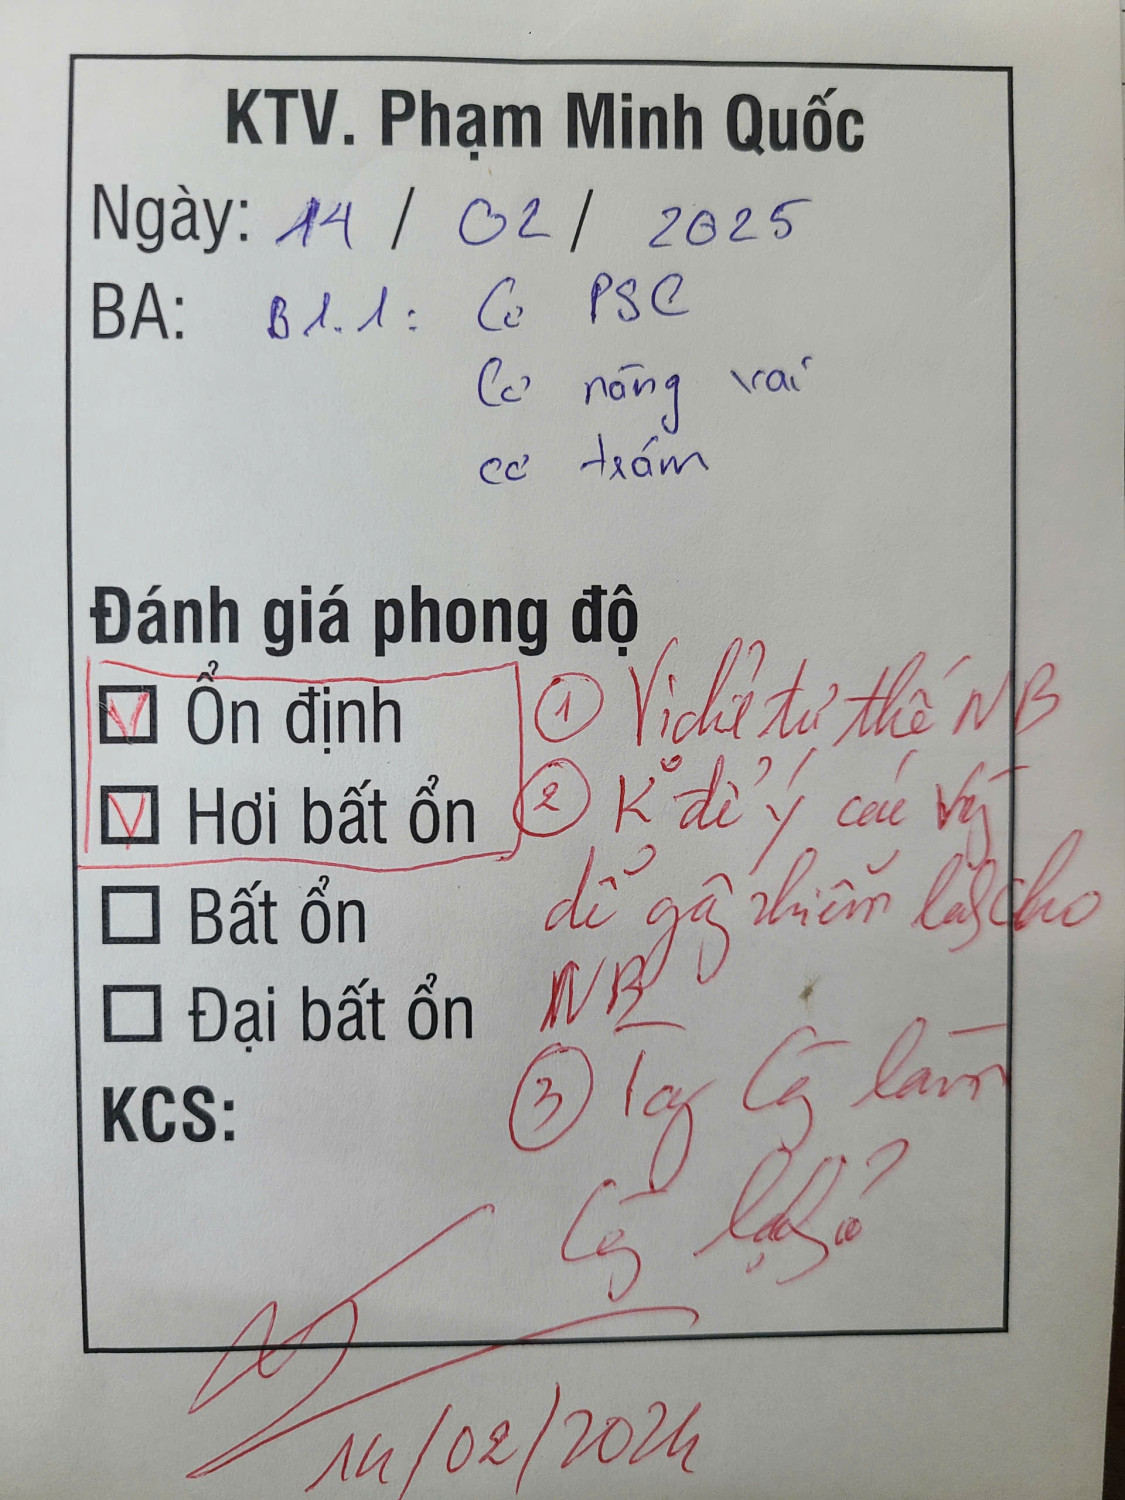 KTV. Phạm Minh Quốc
Ngày: 14 / 02 / 2025
BA: B1.1: Cơ PSC
Cơ nâng vai
cơ trám
Đánh giá phong độ
Ổn định
① Vi chế tư thế NB
Hơi bất ổn
② K để ý các
dễ gây nhiễm cho
NB
Bất ổn
Đại bất ổn
③ Tay làm
KCS:
14/02/2024